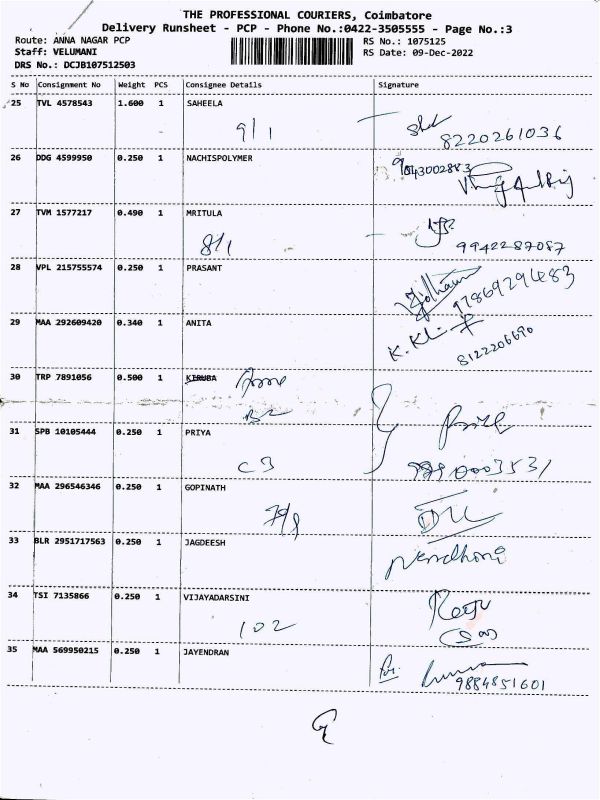 THE PROFESSIONAL COURIERS, Coimbatore
Delivery Runsheet - PCP - Phone No.:0422-3505555 - Page No.:3
Route: ANNA NAGAR PCP RS No.: 1075125
Staff: VELUMANI RS Date: 09-Dec-2022
DRS No.: DCJB107512503
S No Consignment No Weight PCS Consignee Details Signature
25 TVL 4578543 1.600 1 SAHEELA
9/1 8220261036
26 DDG 4599950 0.250 1 NACHISPOLYMER
9043002883
27 TVM 1577217 0.490 1 MRITULA
8/1 9942287087
28 VPL 215755574 0.250 1 PRASANT
29 MAA 292609420 0.340 1 ANITA
8122206690
30 TRP 7891056 0.500 1 KIRUBA
B2
31 SPB 10105444 0.250 1 PRIYA
C3
32 MAA 296546346 0.250 1 GOPINATH
33 BLR 2951717563 0.250 1 JAGDEESH
34 TSI 7135866 0.250 1 VIJAYADARSINI
102
35 MAA 569950215 0.250 1 JAYENDRAN
9884851601